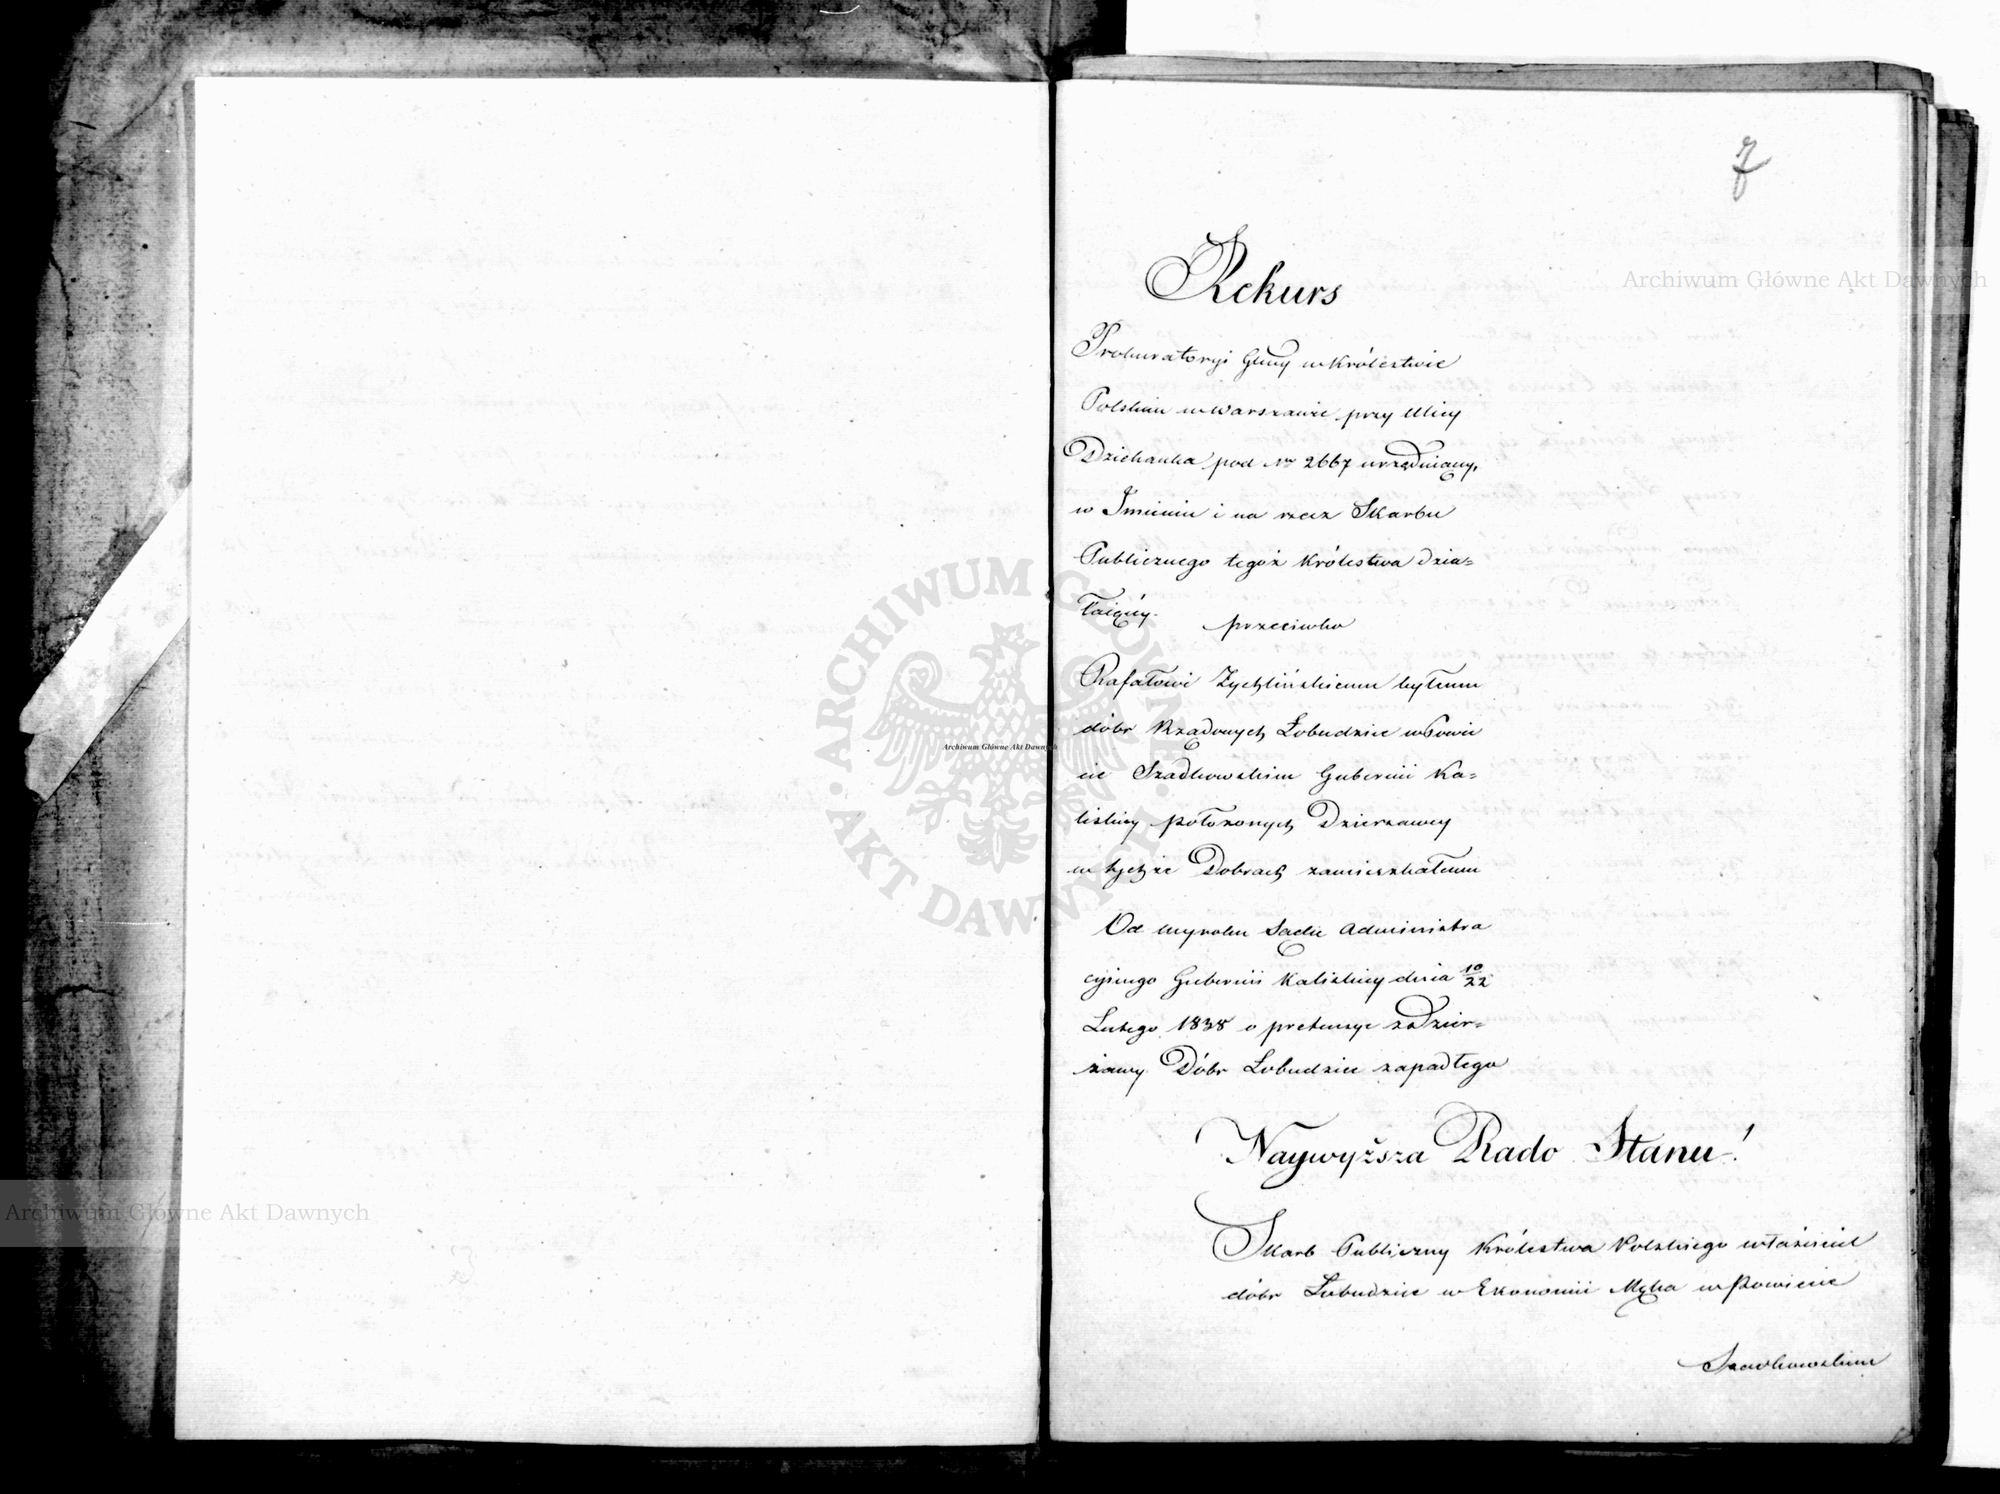 7
Rekurs
Prokuratoryi Glney w Królestwie
Polskim w Warszawie przy Ulicy
Dziekanka pod Nr 2667 urzęduiącey,
w Imieniu i na rzecz Skarbu
Publicznego tegoż Królestwa dzia=
łaiącéy.
przeciwko
Rafałowi Zychlińskiemu byłemu
dóbr Rządowych Łobudzice w Powie
cie Szadkowskim Gubernii Ka=
liskiey położonych Dzierżawcy
w tychże Dobrach zamieszkałemu
Od wyroku Sądu Administra
cyinego Gubernii Kaliskiey dnia 10/22
Lutego 1838 o pretensye z dzier=
żawy Dóbr Łobudzice zapadłego
Naywyższa Rado Stanu!
Skarb Publiczny Królestwa Polskiego właściciel
dóbr Łobudzice w Ekonomii Męka w Powiecie
Szadkowskim
Archiwum Główne Akt Dawnych
Archiwum Główne Akt Dawnych
Archiwum Główne Akt Dawnych
ARCHIWUM GŁÓWNE AKT DAWNYCH